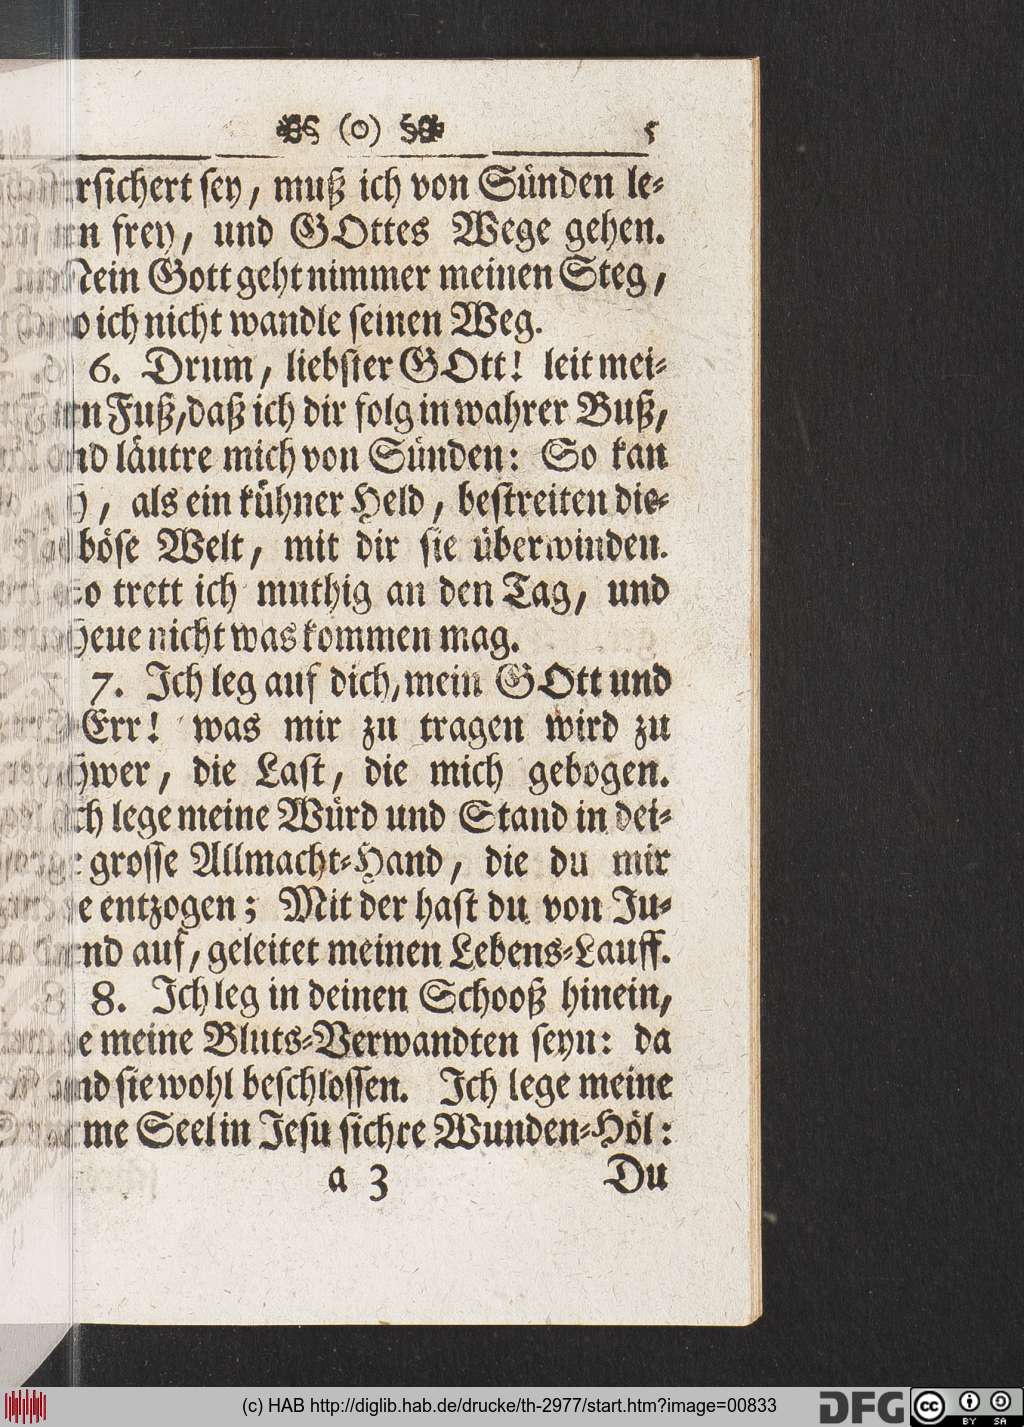 (0) 5
rsichert sey, muß ich von Sünden le-
n frey, und GOttes Wege gehen.
ein Gott geht nimmer meinen Steg,
o ich nicht wandle seinen Weg.
6. Drum, liebster GOtt! leit mei-
n Fuß, daß ich dir folg in wahrer Buß,
nd läutre mich von Sünden: So kan
, als ein kühner Held, bestreiten die-
böse Welt, mit dir sie überwinden.
o trett ich muthig an den Tag, und
heue nicht was kommen mag.
7. Ich leg auf dich, mein GOtt und
Err! was mir zu tragen wird zu
hwer, die Last, die mich gebogen.
ch lege meine Würd und Stand in dei-
grosse Allmacht-Hand, die du mir
e entzogen; Mit der hast du von Ju-
nd auf, geleitet meinen Lebens-Lauff.
8. Ich leg in deinen Schooß hinein,
e meine Bluts-Verwandten seyn: da
nd sie wohl beschlossen. Ich lege meine
me Seel in Jesu sichre Wunden-Höl:
a 3 Du
(c) HAB http://diglib.hab.de/drucke/th-2977/start.htm?image=00833
DFG cc BY SA